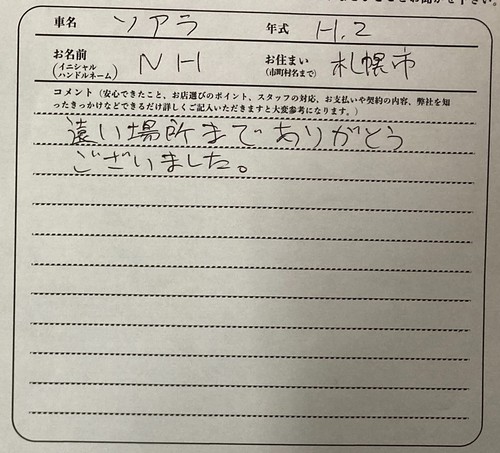 車名 ソアラ 年式 H.2
お名前 (イニシャル ハンドルネーム) NH お住まい (市町村名まで) 札幌市
コメント（安心できたこと、お店選びのポイント、スタッフの対応、お支払いや契約の内容、弊社を知
ったきっかけなどできるだけ詳しくご記入いただきますと大変参考になります。）
遠い場所まで ありがとう
ございました。